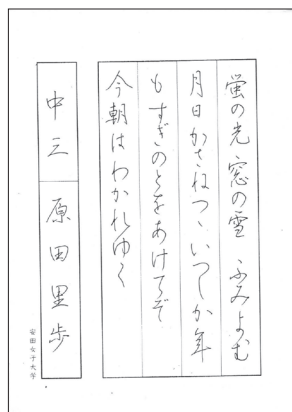 蛍の光 窓の雪 ふみよむ
月日かさねつゝ いつしか年
もすぎのとをあけてぞ
今朝はわかれゆく
中三 原田里歩
安田女子大学